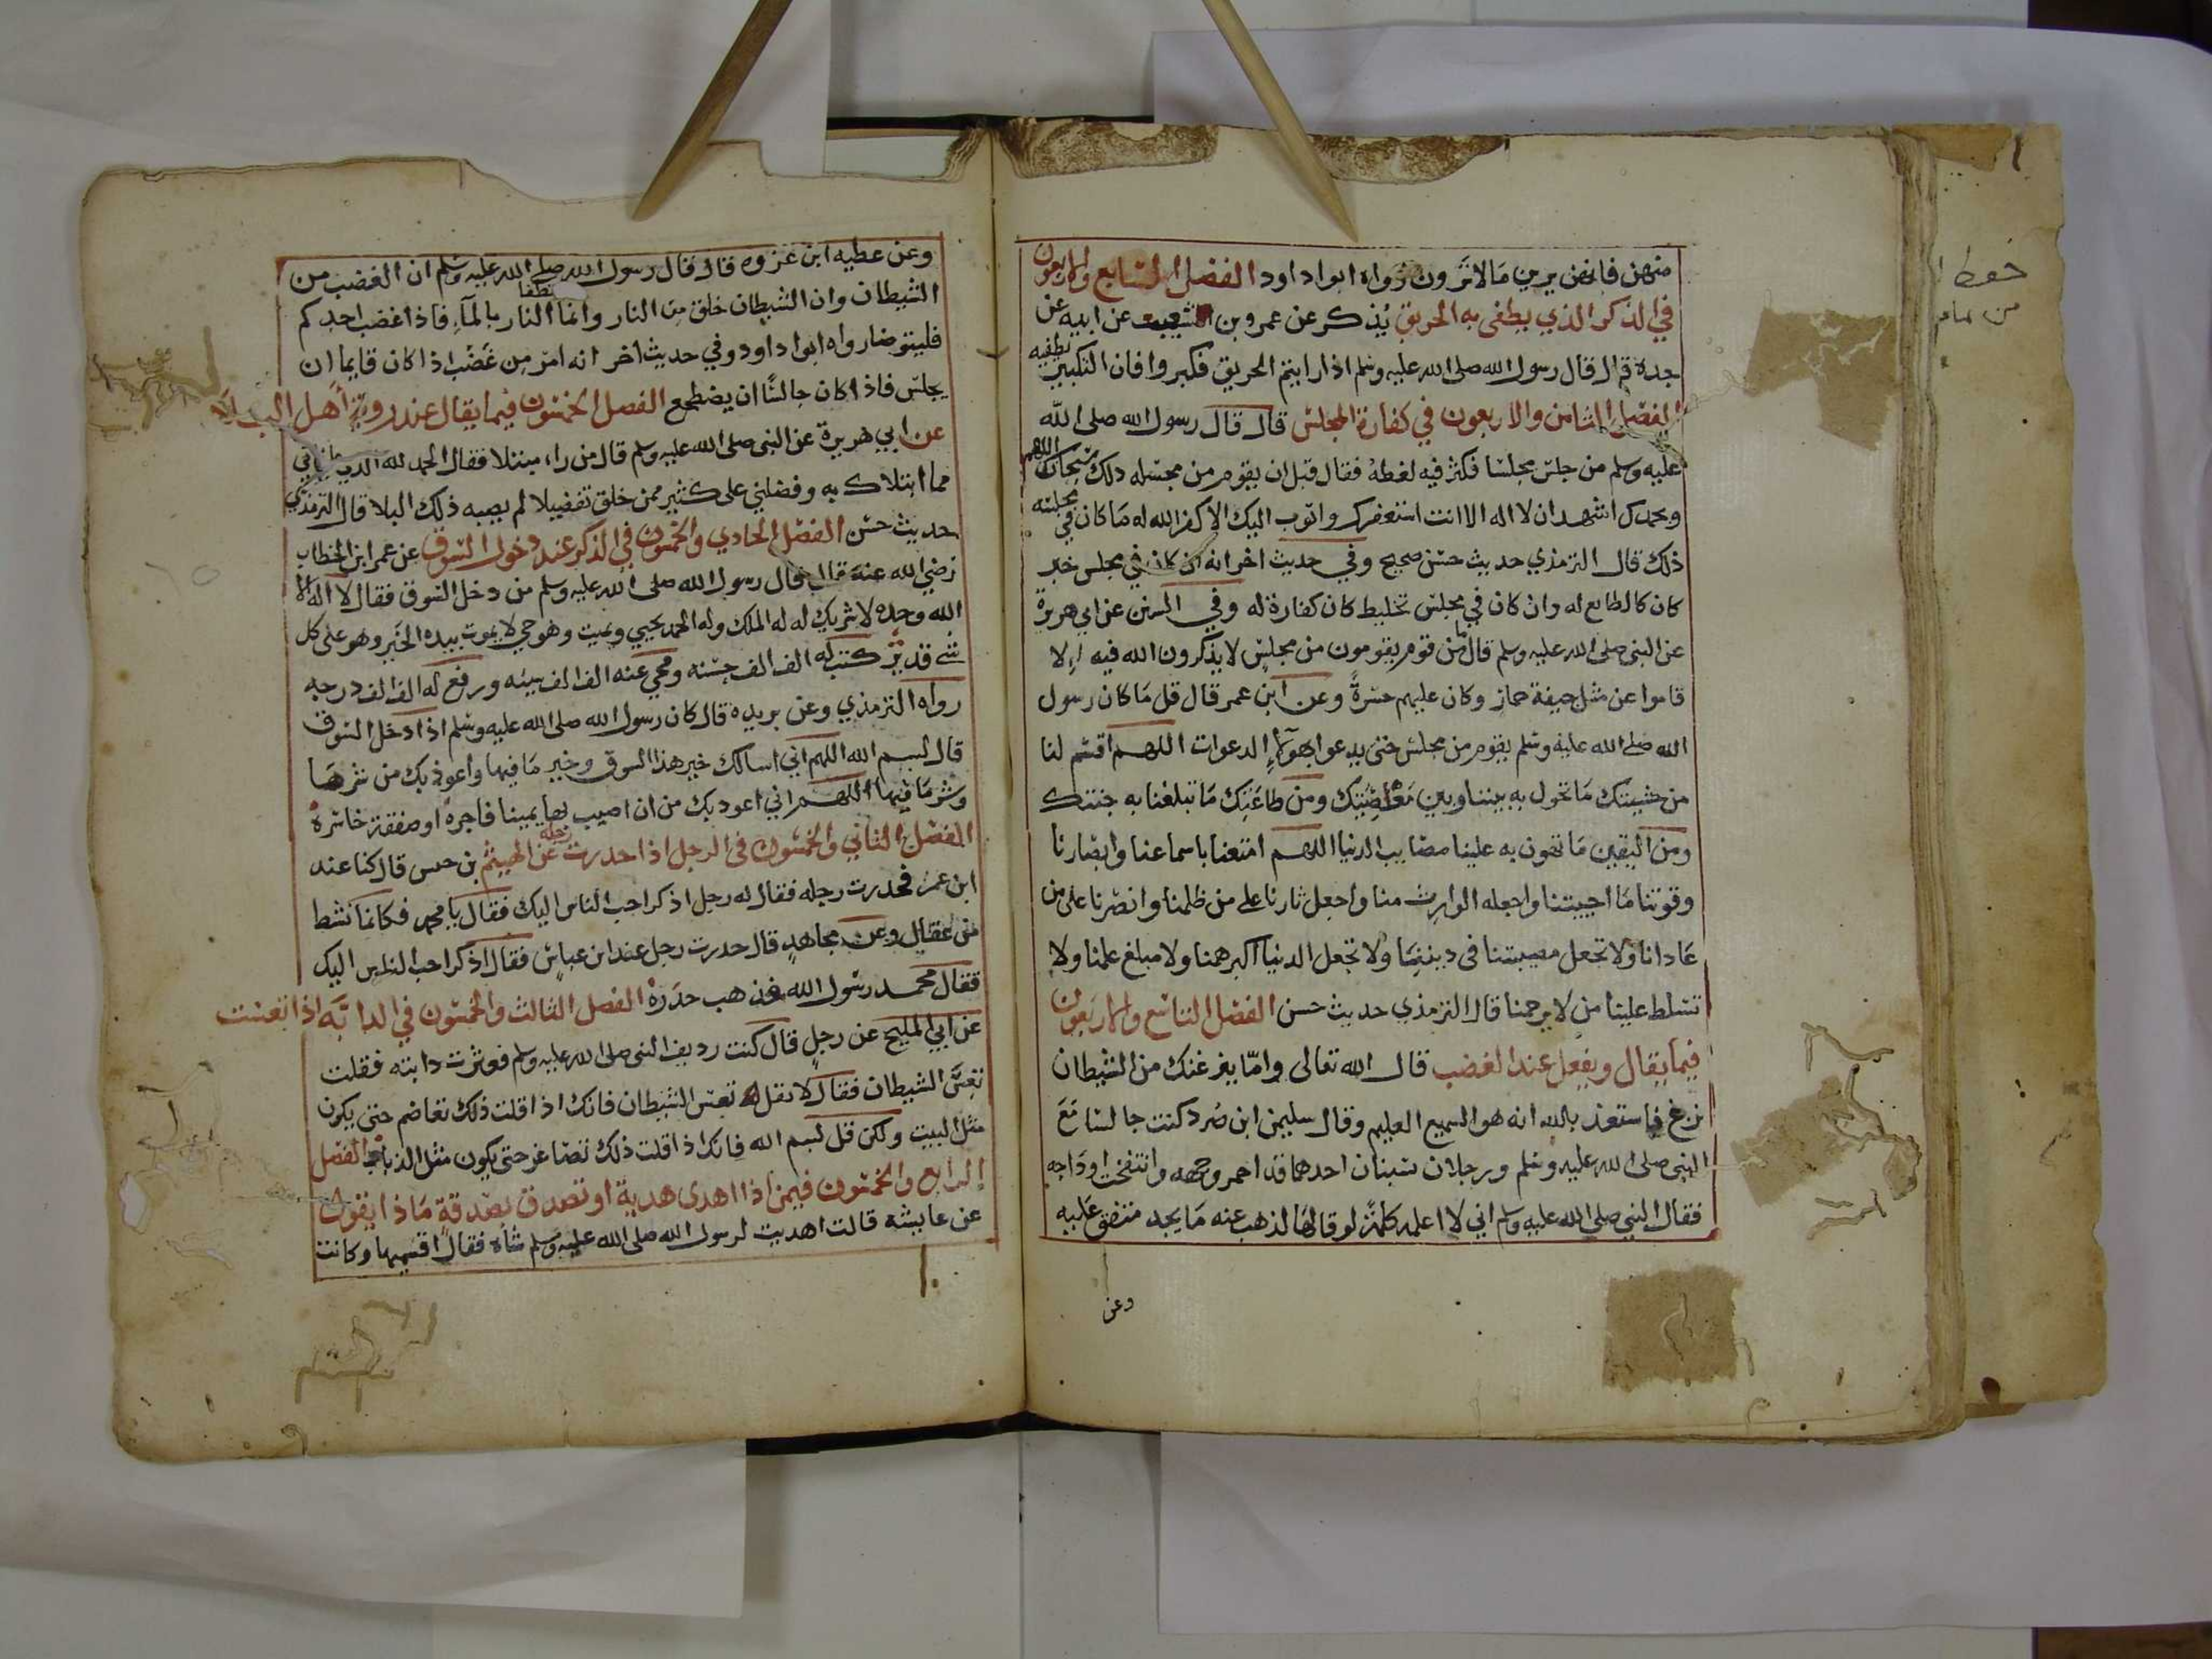 منهن فانهن يرين ما لا ترون رواه ابوا داود الفصل السابع والاربعون
في الذكر الذي يطفى به الحريق يُذكر عن عمرو بن شعيب عن ابيه عن
جده قال قال رسول الله صلى الله عليه وسلم اذا رايتم الحريق فكبروا فان التكبير يطفيه
الفصل الثامن والاربعون في كفارة المجلس قال قال رسول الله صلى الله
عليه وسلم من جلس مجلسا فكثر فيه لغطه فقال قبل ان يقوم من مجسله ذلك سبحانك اللهم
وبحمدك اشهد ان لا اله الا انت استغفرك واتوب اليك الا كفر الله له ما كان في مجلسه
ذلك قال الترمذي حديث حسن صحيح وفي حديث اخر انه ان كان في مجلس خير
كان كالطابع له وان كان في مجلس تخليط كان كفارة له وفي السنن عن ابي هريرة
عن النبي صلى الله عليه وسلم قال ما من قوم يقومون من مجلس لا يذكرون الله فيه الا
قاموا عن مثل جيفة حمار وكان عليهم حسرةً وعن ابن عمر قال قل ما كان رسول
الله صلى الله عليه وسلم يقوم من مجلس حتى يدعوا بهولاء الدعوات اللهم اقسم لنا
من خشيتك ما تحول به بيننا وبين معاصيتك ومن طاعتك ما تبلغنا به جنتك
ومن اليقين ما تهون به علينا مصايب الدنيا اللهم امتعنا باسماعنا وابصارنا
وقوتنا ما احييتنا واجعله الوارث منا واجعل ثارنا على من ظلمنا وانصرنا على من
عادانا ولا تجعل مصيبتنا في ديننا ولا تجعل الدنيا اكبر همنا ولا مبلغ علمنا ولا
تسلط علينا من لا يرحمنا قال الترمذي حديث حسن الفصل التاسع والاربعون
فيما يقال ويفعل عند الغضب قال الله تعالى واما ينزغنك من الشيطان
نزغ فاستعذ بالله انه هو السميع العليم وقال سليمن ابن صُرد كنت جالسا مع
النبي صلى الله عليه وسلم ورجلان يستبان احدهما قد احمر وجهه وانتفخت اوداجه
فقال النبي صلى الله عليه وسلم اني لا اعلم كلمة لو قالها لذهب عنه ما يجد متفق عليه
وعن
وعن عطيه ابن عزوه قال قال رسول الله صلى الله عليه وسلم ان الغضب من
الشيطان وان الشيطان خلق من النار وانما تطفا النار بالمآء فاذا غضب احدكم
فليتوضا رواه ابوا داود وفي حديث اخر انه امر من غضب اذا كان قايما ان
يجلس فاذا كان جالسًا ان يضطجع الفصل الخمسون فيما يقال عند روية أهل البلا
عن ابي هريرة عن النبي صلى الله عليه وسلم قال من راء مبتلا فقال الحمد لله الذي عافاني
مما ابتلاك به وفضلني على كثير ممن خلق تفضيلا لم يصبه ذلك البلا قال الترمذي
حديث حسن الفصل الحادي والخمسون في الذكر عند دخول السوق عن عمر ابن الخطاب
رضي الله عنه قال قال رسول الله صلى الله عليه وسلم من دخل السوق فقال لا اله الا
الله وحده لا شريك له له الملك وله الحمد يحيي ويميت وهو حي لا يموت بيده الخير وهو على كل
شي قدير كتب له الف الف حسنه ومحي عنه الف الف سيئه ورفع له الف الف درجه
رواه الترمذي وعن بريده قال كان رسول الله صلى الله عليه وسلم اذا دخل السوق
قال بسم الله اللهم اني اسالك خير هذا السوق وخير ما فيها واعوذ بك من شرها
وشر ما فيها اللهم اني اعوذ بك من ان اصيب بها يمينا فاجرة او صفقة خاسرة
الفصل الثاني والخمسون في الرجل اذا حدرت رجله عن الهيثم بن حنس قال كنا عند
ابن عمر فخدرت رجله فقال له رجل اذكر احب الناس اليك فقال يا محمد فكانما نشط
من عقال وعن مجاهد قال حدرت رجل عند ابن عباس فقال اذكر احب الناس اليك
فقال محمد رسول الله فذهب حدره الفصل الثالث والخمسون في الدابة اذا تعست
عن ابي المليح عن رجل قال كنت رديف النبي صلى الله عليه وسلم فعثرت دابته فقلت
تعس الشيطان فقال لا تقل تعس الشيطان فانك اذا قلت ذلك تعاضم حتى يكون
مثل البيت ولكن قل بسم الله فانك اذا قلت ذلك تصاغر حتى يكون مثل الذباب الفصل
الرابع والخمسون فيمن اذا اهدى هدية او تصدق بصدقة ماذا يقول
عن عايشه قالت اهديت لرسول الله صلى الله عليه وسلم شاة فقال اقسميها وكانت